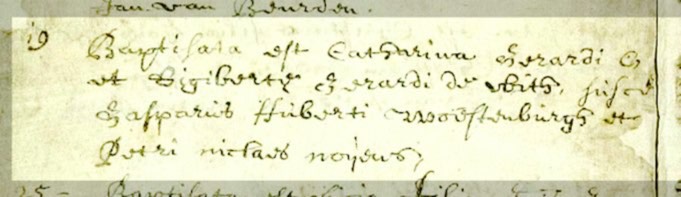 Jan van Beurden.
19 Baptisata est Catharina Gerardi G
et Sigiberty Gerardi de With, susce
Gasparus Huberti Woestenburgh et
Petri niclaes noijens,
25 - Baptisata est